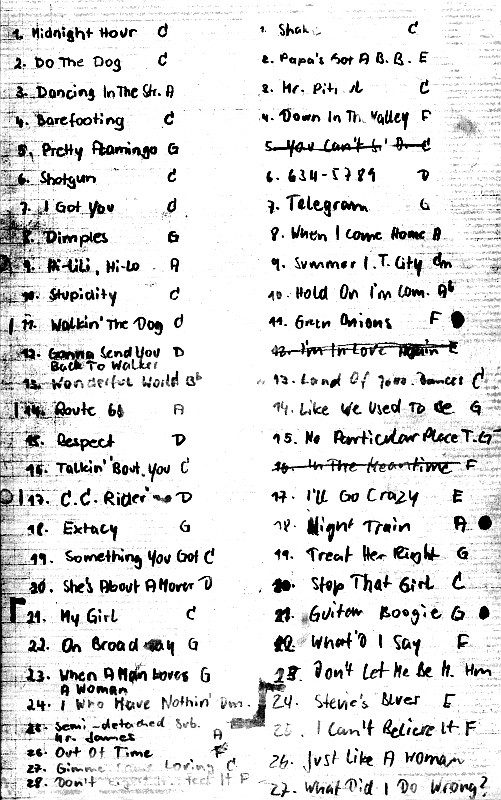 1. Midnight Hour C
2. Do The Dog C
3. Dancing In The Str. A
4. Barefooting C
5. Pretty Flamingo G
6. Shotgun C
7. I Got You d
8. Dimples G
9. Hi-Lili, Hi-Lo A
10. Stupidity C
11. Walkin' The Dog d
12. Gonna Send You D
Back To Walker
13. Wonderful World Bb
14. Route 66 A
15. Respect D
16. Talkin' 'Bout You C
17. C.C. Rider D
18. Extacy G
19. Something You Got C
20. She's About A Mover D
21. My Girl C
22. On Broadway G
23. When A Man Loves G
A Woman
24. I Who Have Nothin' Dm.
25. Semi-detached Sub.
Mr. James A
26. Out Of Time F
27. Gimme Some Loving C
28. Don't It F
1. Shak C
2. Papa's Got A B.B. E
3. Mr. Piti C
4. Down In Th Valley F
5. You Can't C
6. 634-5789 D
7. Telegram G
8. When I Come Home B
9. Summer I.T. City Cm
10. Hold On I'm Com. Ab
11. Green Onions F
12. I'm In Love Again E
13. Land Of 1000 Dances C
14. Like We Used To Be G
15. No Particular Place T. G
16. In The Meantime F
17. I'll Go Crazy E
18. Night Train A
19. Treat Her Right G
20. Stop That Girl C
21. Guitar Boogie G
22. What'd I Say F
23. Don't Let Me Be M. Hm
24. Stevie's Blues E
25. I Can't Believe It F
26. Just Like A Woman
27. What Did I Do Wrong?